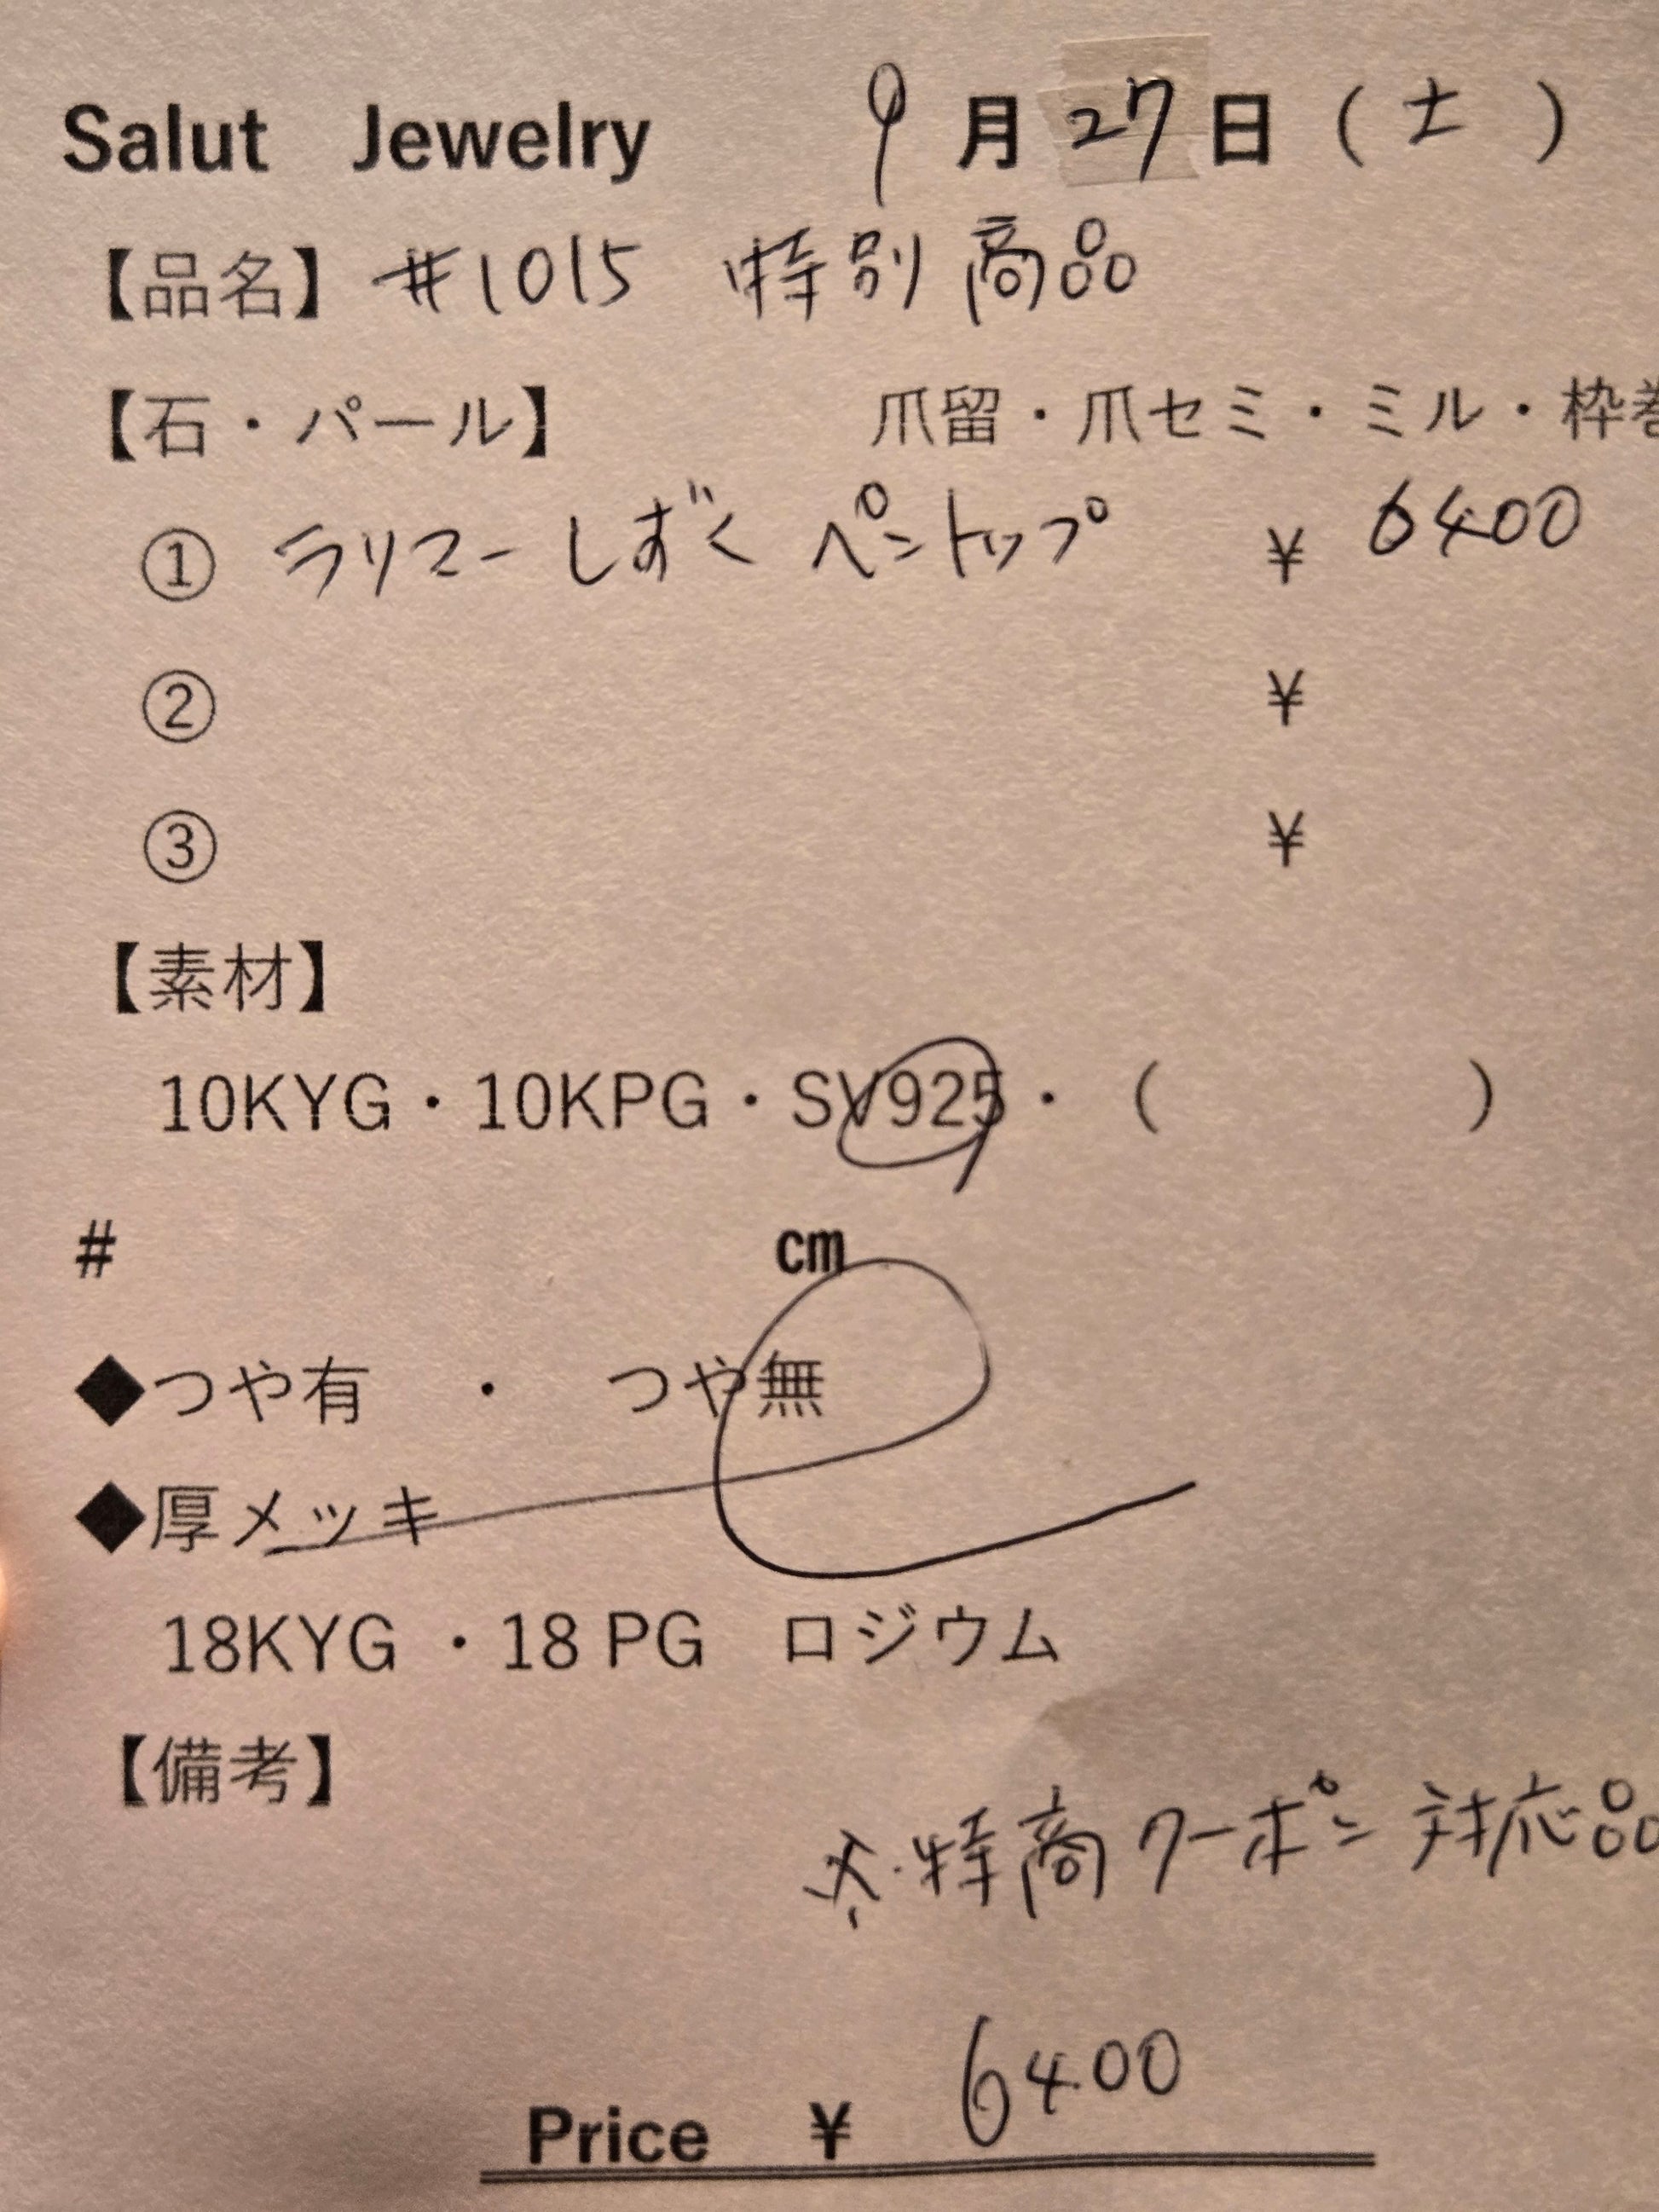 Salut Jewelry 9月27日(土)
【品名】#1015 特別商品
【石・パール】 爪留・爪セミ・ミル・枠巻
① ラリマー しずく ペントップ ¥ 6400
② ¥
③ ¥
【素材】
10KYG・10KPG・SV925・( )
# cm
◆つや有 ・ つや無
◆厚メッキ
18KYG ・18 PG ロジウム
【備考】
※特商クーポン対応品
Price ¥ 6400